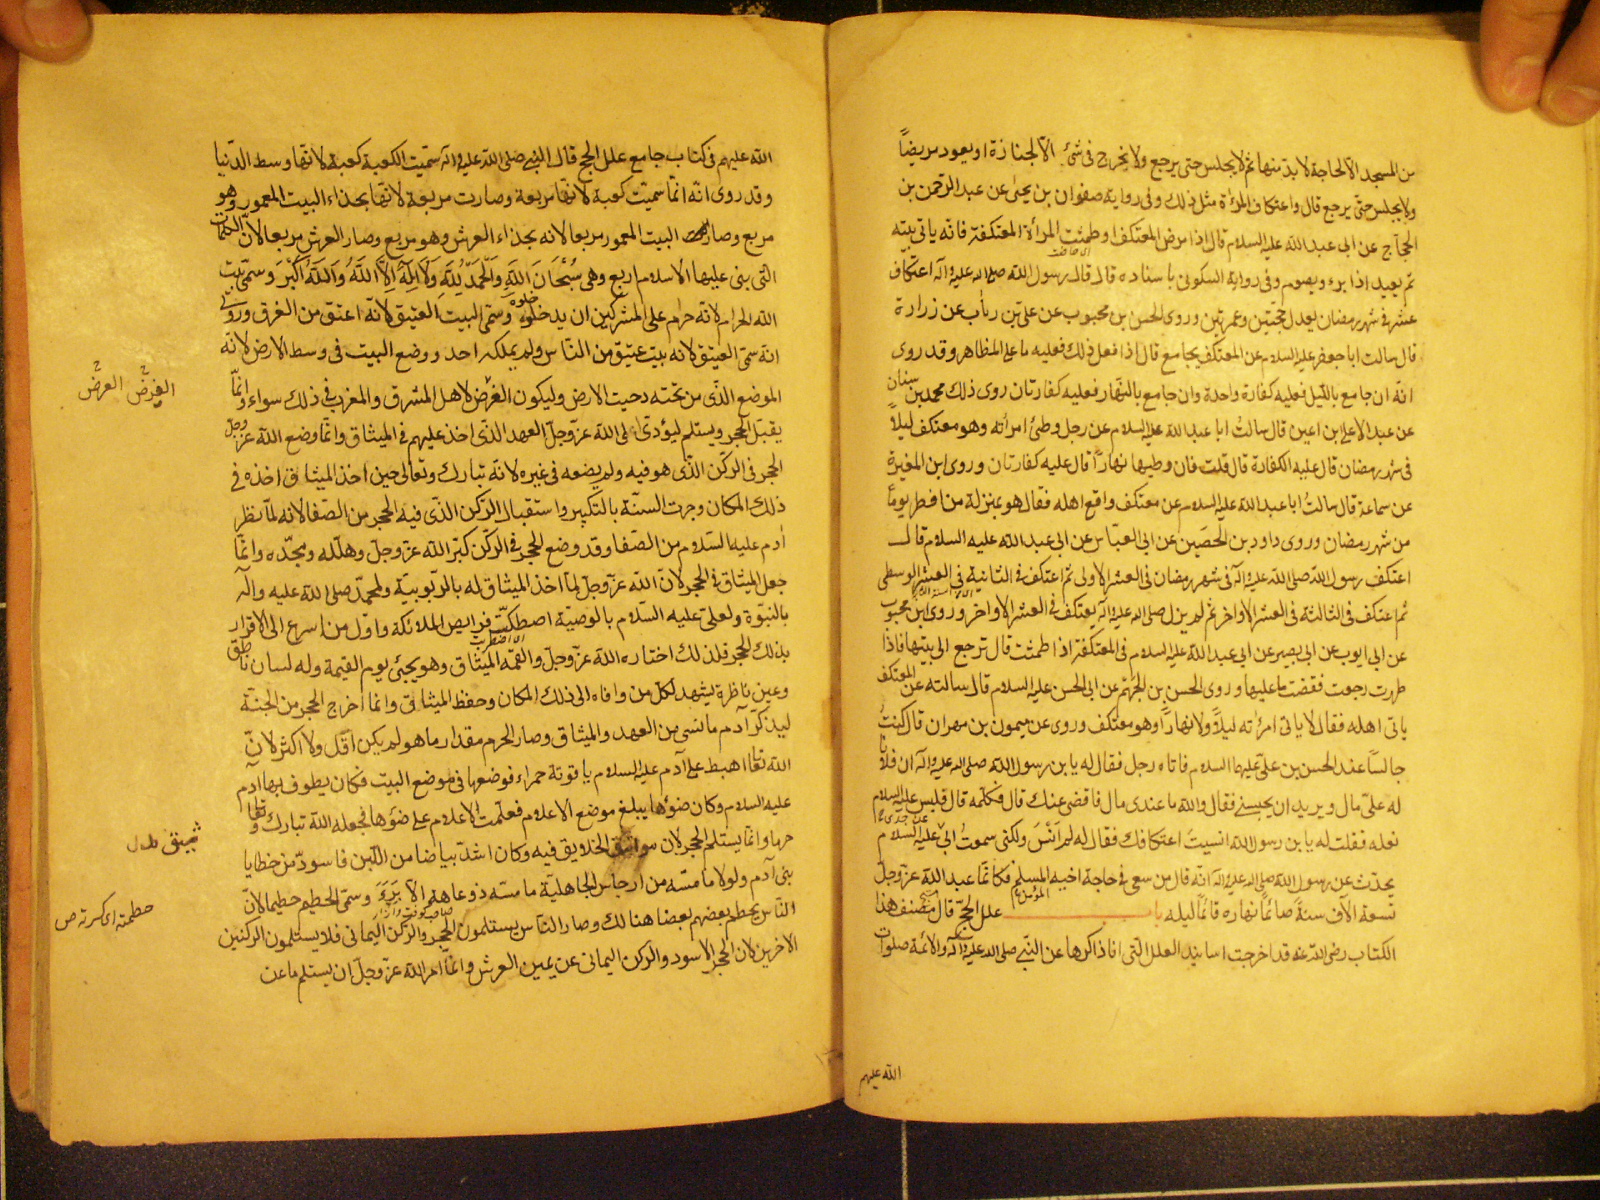 من المسجد الا لحاجة لا بد منها ثم لا يجلس حتى يرجع ولا يخرج فى شئ الا لجنازة او يعود مريضاً
ولا يجلس حتى يرجع قال واعتكاف المرأة مثل ذلك وفى رواية صفوان بن يحيى عن عبد الرحمن بن
الحجاج عن ابى عبد الله عليه السلام قال اذا مرض المعتكف او طمثت المرأة المعتكفة فانه ياتى بيته
ثم يعيد اذا برء ويصوم وفى رواية السكونى باسناده قال قال رسول الله صلى الله عليه واله اعتكاف
عشر فى شهر رمضان يعدل حجتين وعمرتين وروى الحسن بن محبوب عن على بن رئاب عن زرارة
قال سالت ابا جعفر عليه السلام عن المعتكف يجامع قال اذا فعل ذلك فعليه ما على المظاهر وقد روى
انه ان جامع بالليل فعليه كفارة واحدة وان جامع بالنهار فعليه كفارتان روى ذلك محمد بن سنان
عن عبد الاعلى بن اعين قال سالتُ ابا عبد الله عليه السلام عن رجل وطئ امرأته وهو معتكف ليلاً
فى شهر رمضان قال عليه الكفارة قال قلت فان وطيها نهاراً قال عليه كفارتان وروى ابن المغيرة
عن سماعة قال سالتُ ابا عبد الله عليه السلام عن معتكف واقع اهله فقال هو بمنزلة من افطر يوماً
من شهر رمضان وروى داود بن الحصين عن ابى العباس عن ابى عبد الله عليه السلام قال
اعتكف رسول الله صلى الله عليه واله فى شهر رمضان فى العشر الاولى ثم اعتكف فى الثانية فى العشر الوسطى
ثم اعتكف فى الثالثة فى العشر الاواخر ثم لم يزل صلى الله عليه واله يعتكف فى العشر الاواخر وروى ابن محبوب
عن ابى ايوب عن ابى بصير عن ابى عبد الله عليه السلام فى المعتكفة اذا طمثت قال ترجع الى بيتها فاذا
طهرت رجعت فقضت ما عليها وروى الحسن بن الجهم عن ابى الحسن عليه السلام قال سالته عن المعتكف
ياتى اهله فقال لا ياتى امرأته ليلاً ولا نهاراً وهو معتكف وروى عن ميمون بن مهران قال كنتُ
جالساً عند الحسن بن على عليهما السلام فاتاه رجل فقال له يا بن رسول الله صلى الله عليه واله ان فلانا
له علىّ مال ويريد ان يحبسنى فقال والله ما عندى مال فاقضى عنك قال فكلمه قال فلبس عليه السلام
نعله فقلت له يا بن رسول الله انسيتَ اعتكافك فقال له لم اَنْسَ ولكنى سمعتُ ابى عليه السلام
يحدّث عن رسول الله صلى الله عليه واله انه قال من سعى فى حاجة اخيه المسلم فكانما عبد الله عزوجل
تسعة الاف سنة صائماً نهاره قائماً ليله باب علل الحج قال مصنف هذا
الكتاب رضى الله عنه قد اخرجت اسانيد العلل التى انا ذاكرها عن النبى صلى الله عليه واله والائمة صلوات
الله عليهم
الله عليهم فى كتاب جامع علل الحج قال النبى صلى الله عليه واله سمّيت الكعبة كعبة لانها وسط الدنيا
وقد روى انه انما سميت كعبة لانها مربعة وصارت مربعة لانها بحذاء البيت المعمور وهو
مربع وصار البيت المعمور مربعا لانه بحذاء العرش وهو مربع وصار العرش مربعا لان الكلمات
التى بنى عليها الاسلام اربع وهى سُبْحَانَ اللهِ وَالحَمدُ للهِ وَلَا اِلهَ اِلاَّ اللهُ وَاَللهُ اَكْبَرَ وسمّى بيت
الله الحرام لانه حرام على المشركين ان يدخلوه وسمّى البيت العتيق لانه اعتق من الغرق وروى
انه سمّى العتيق لانه بيت عتيق من الناس ولم يملكه احد ووضع البيت فى وسط الارض لانه
الموضع الذى من تحته دحيت الارض وليكون الغرض لاهل المشرق والمغرب فى ذلك سواء وانما
يقبّل الحجر ويستلم ليؤدى الى الله عز وجل العهد الذى اخذ عليهم فى الميثاق وانما وضع الله عز وجل
الحجر فى الركن الذى هو فيه ولم يضعه فى غيره لانه تبارك وتعالى حين اخذ الميثاق اخذه فى
ذلك المكان وجرت السنّة بالتكبير واستقبال الركن الذى فيه الحجر من الصفا لانه لما نظر
ادم عليه السلام من الصفا وقد وضع الحجر فى الركن كبّر الله عز وجل وهلله ومجّده وانما
جعل الميثاق فى الحجر لان الله عز وجل لما اخذ الميثاق له بالربوبيّة ولمحمد صلى الله عليه واله
بالنبوة ولعلى عليه السلام بالوصية اصطكّت فرايص الملائكة واول من اسرع الى الاقرار
بذلك الحجر فلذلك اختاره الله عز وجل والقمه الميثاق وهو يجئ يوم القيمة وله لسان ناطق
وعين ناظرة ليشهد لكل من وافاه الى ذلك المكان وحفظ الميثاق وانما اخرج الحجر من الجنة
ليذكر آدم ما نسى من العهد والميثاق وصار الحرم مقدار ما هو لم يكن اقل ولا اكثر لان
الله تعالى اهبط على آدم عليه السلام ياقوتة حمراء فوضعها فى موضع البيت فكان يطوف بها آدم
عليه السلام وكان ضوؤها يبلغ موضع الاعلام فعلّمت الاعلام على ضوؤها فجعله الله تبارك وتعالى
حرما وانما يستلم الحجر لان مواثيق الخلايق فيه وكان اشدّ بياضا من اللبن فاسودّ من خطايا
بنى آدم ولولا ما مسّه من ارجاس الجاهلية ما مسّه ذو عاهة الا بَرَءَ وسمّى الحطيم حطيما لان
الناس يحطم بعضهم بعضا هنالك وصار الناس يستلمون الحجر والركن اليمانى فلا يستلمون الركنين
الاخرين لان الحجر الاسود والركن اليمانى عن يمين العرش وانما امر الله عز وجل ان يستلم ما عن
الغرض العرض
حطمته اى كسرته ص